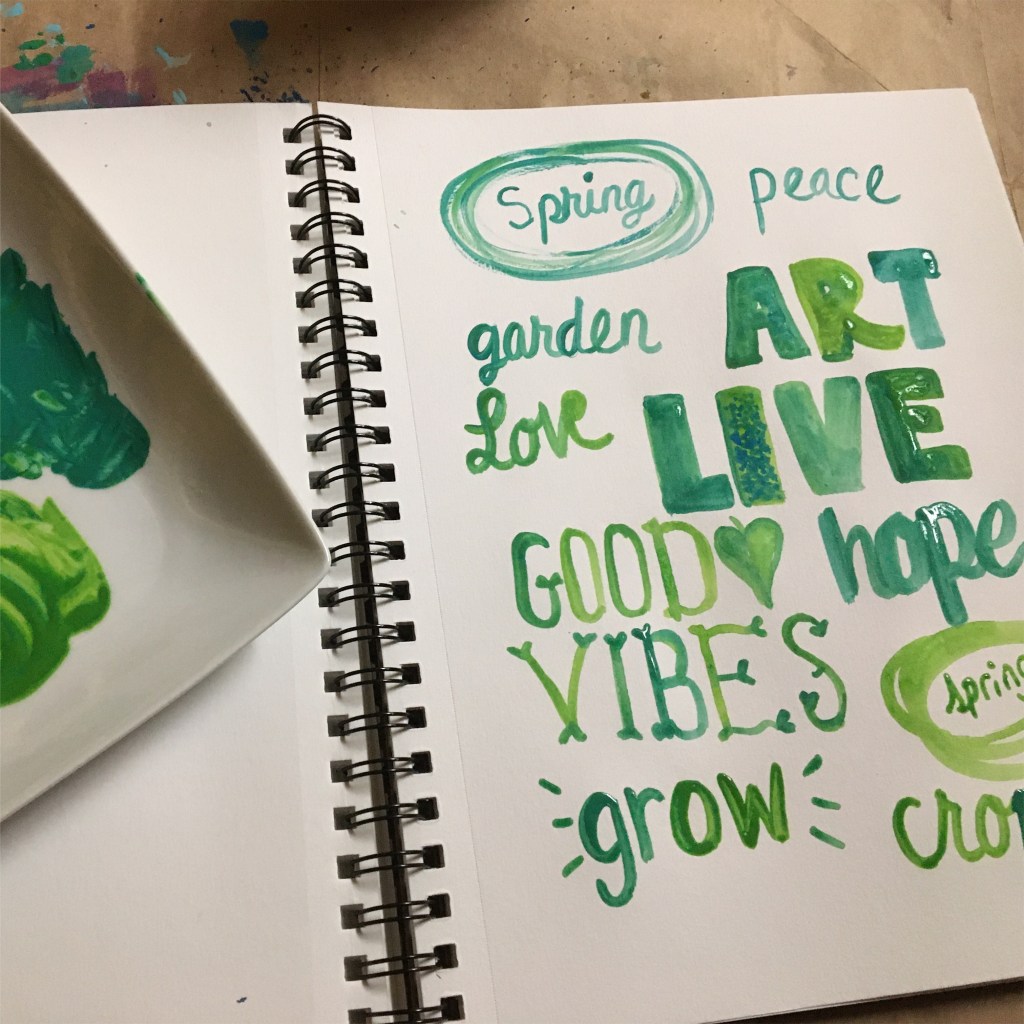 Spring peace
garden ART
Love LIVE
GOOD hope
VIBES spring
grow